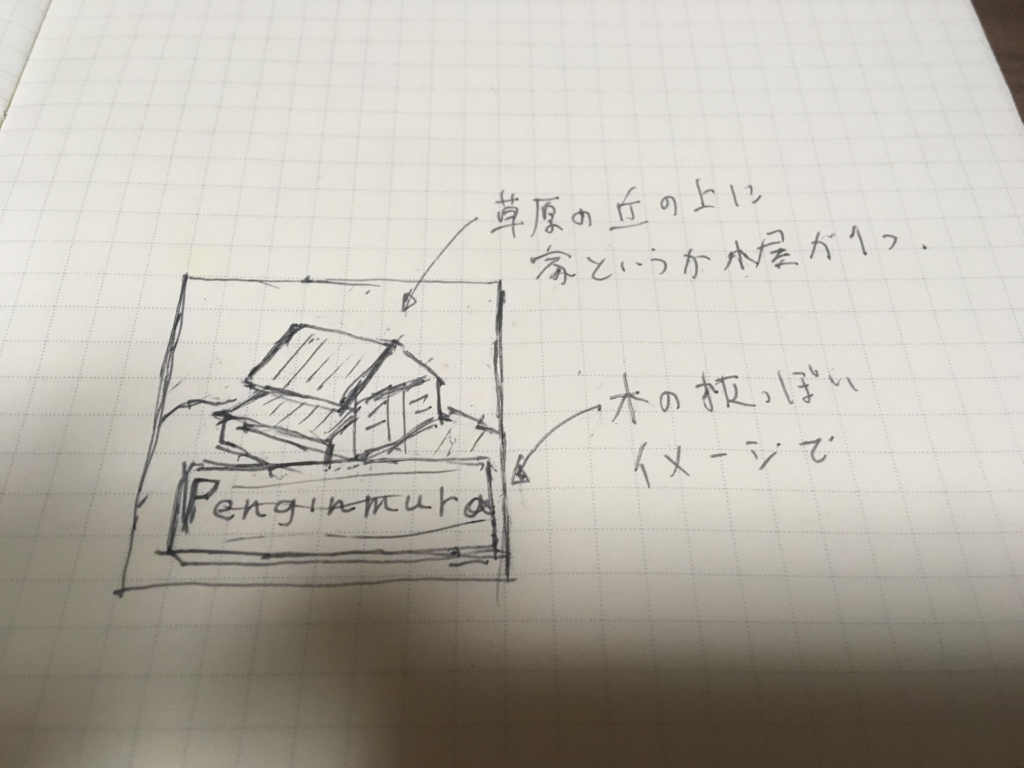 草原の丘の上に
家というか小屋が1つ.
木の板っぽい
イメージで
Penginmura